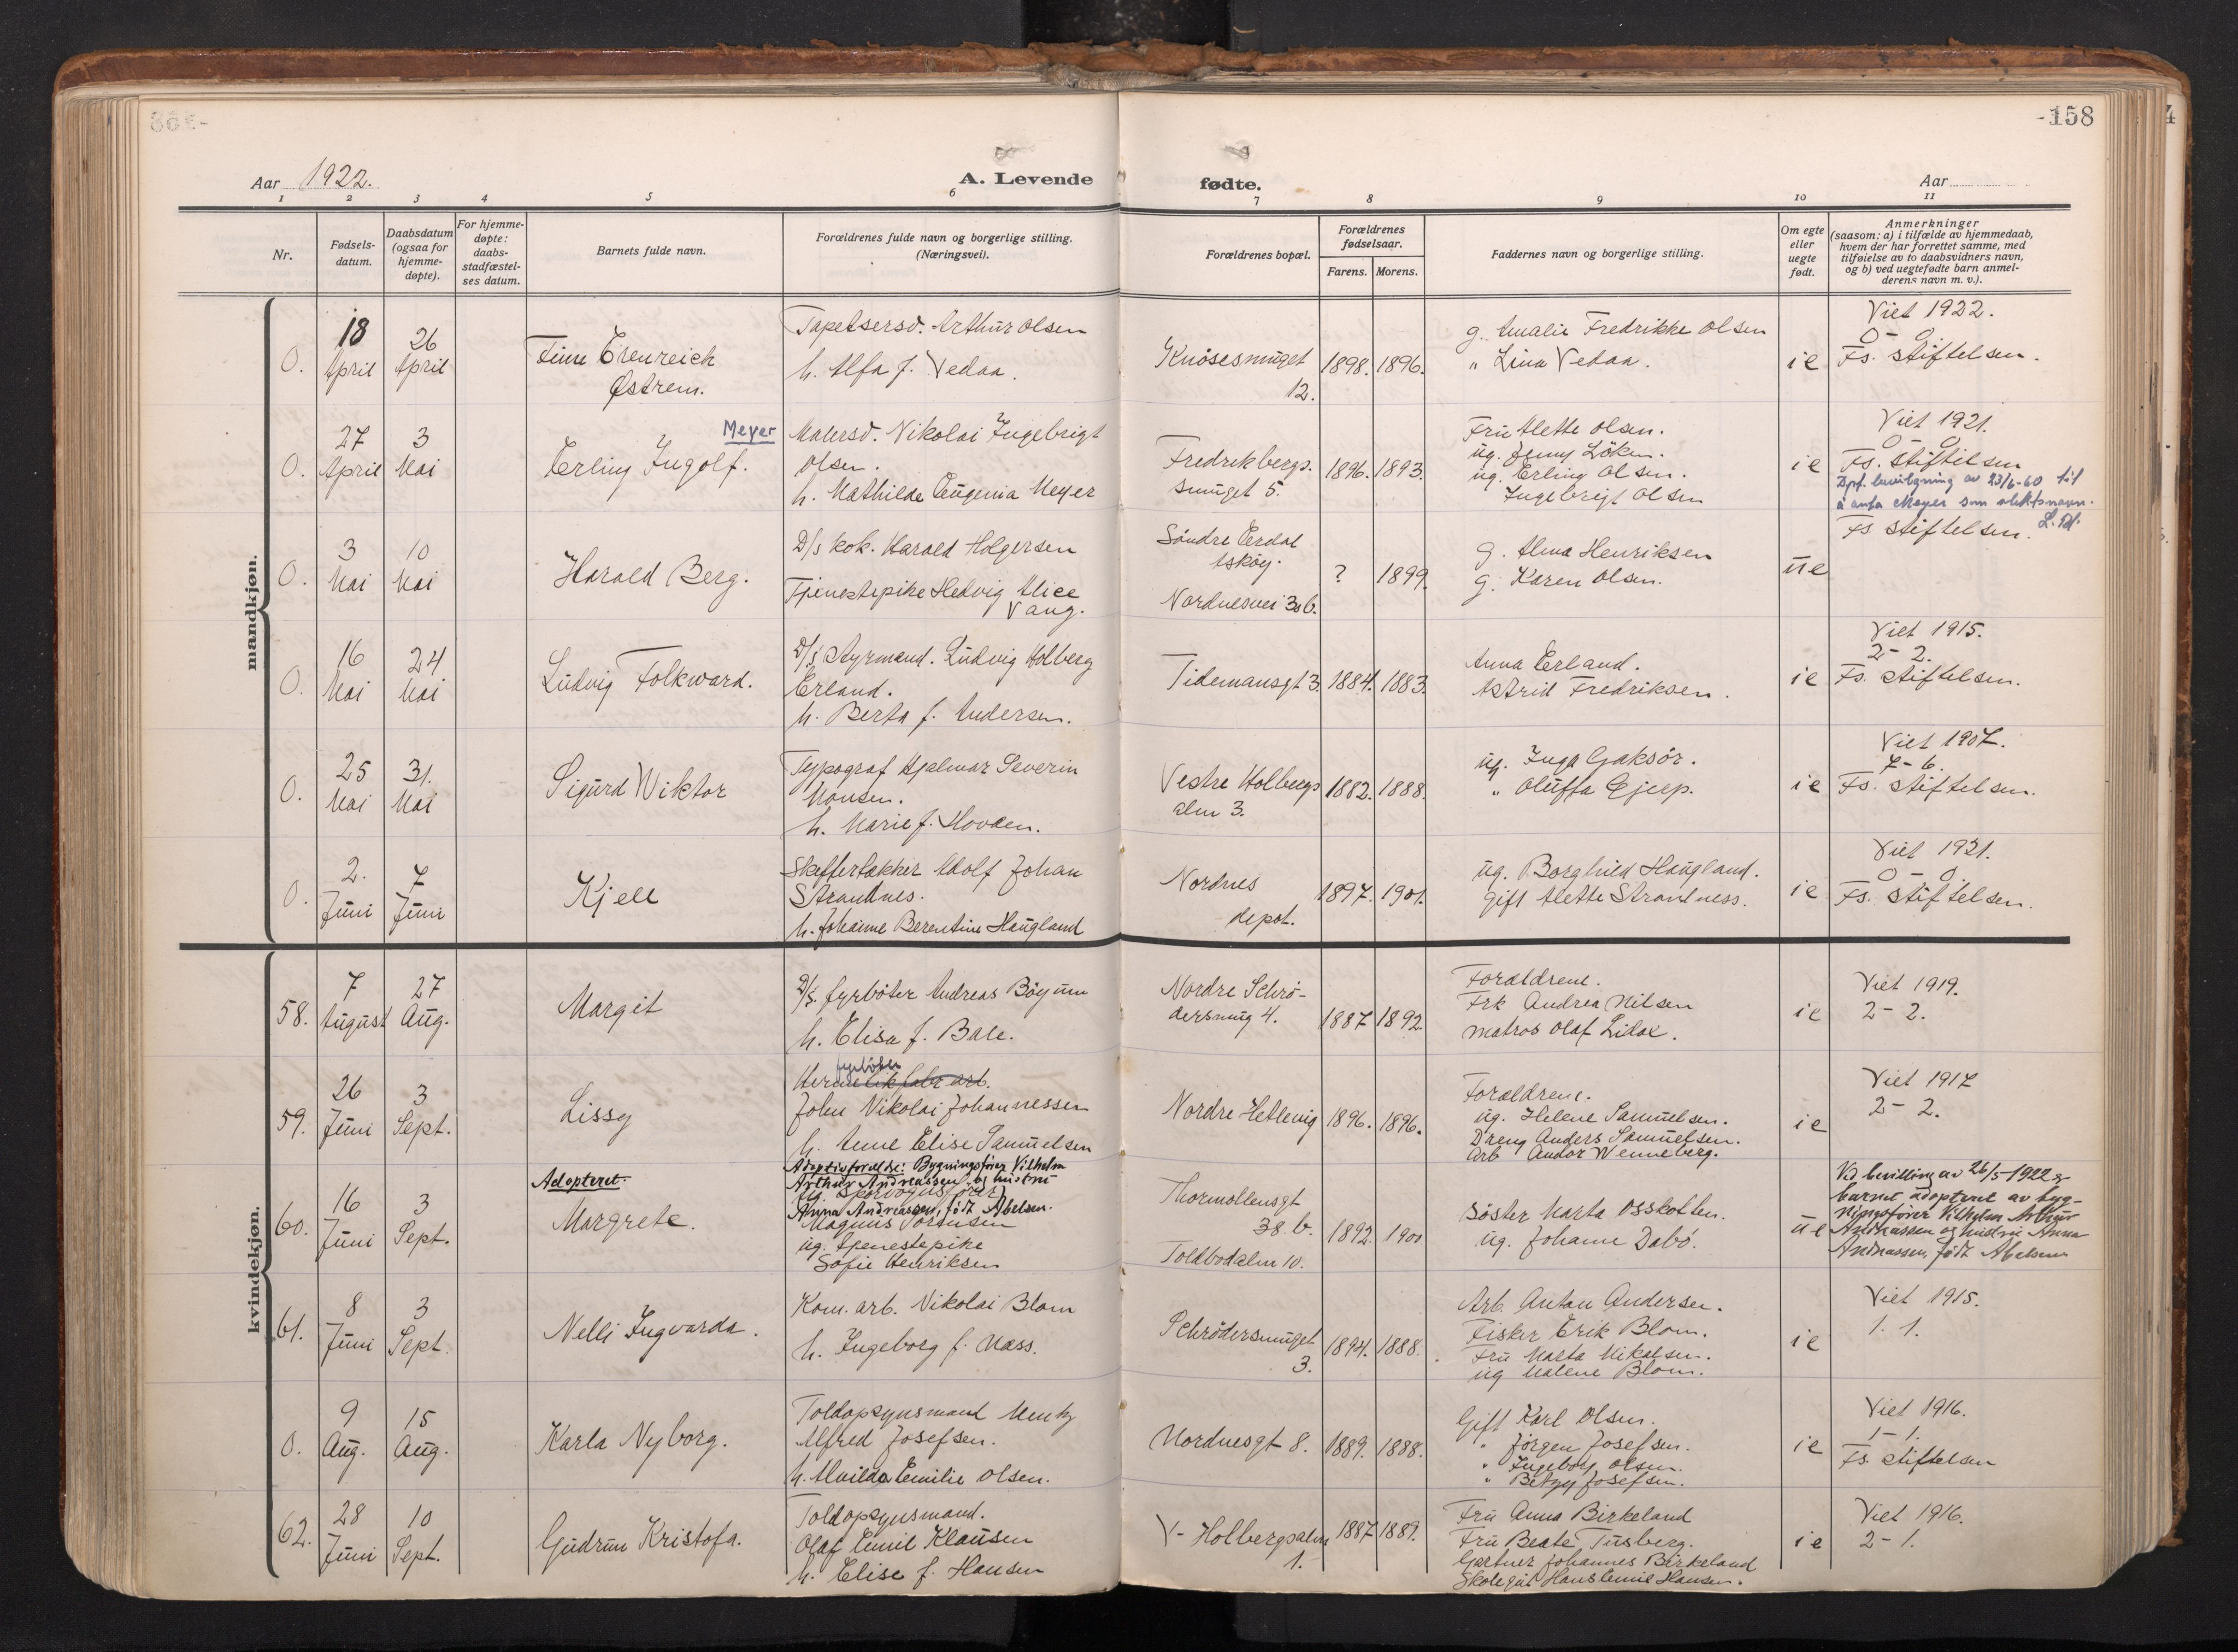 -158
Aar 1922.
A. Levende
fødte.
Aar
1 2 3 4 5 6 7 8 9 10 11
Nr.
Fødsels-
datum.
Daabsdatum
(ogsaa for
hjemme-
døpte).
For hjemme-
døpte:
daabs-
stadfæstel-
ses datum.
Barnets fulde navn.
Forældrenes fulde navn og borgerlige stilling.
(Næringsvei).
Forældrenes bopæl.
Forældrenes
fødselsaar.
Farens. Morens.
Faddernes navn og borgerlige stilling.
Om egte
eller
uegte
født.
Anmerkninger
(saasom: a) i tilfælde av hjemmedaab,
hvem der har forrettet samme, med
tilføielse av to daabsvidners navn,
og b) ved uegtefødte barn anmel-
derens navn m. v.).
mandkjøn.
0.
18
April
26
April
Finn Erenreich
Østrem.
Tapetsersv. Arthur Olsen
h. Alfa f. Vedaa.
Knösesmuget
12.
1898. 1896.
g. Amalie Fredrikke Olsen
" Lina Vedaa.
ie
Viet 1922.
0 - 0.
Fs. stiftelsen.
0.
27
April
3
Mai
Meyer
Erling Ingolf.
Malersv. Nikolai Ingebrigt
Olsen.
h. Mathilde Eugenia Meyer
Fredrikbergs-
smuget 5.
1896. 1893.
Fru Alette Olsen.
ug. Jenny Löken.
ug. Erling Olsen.
Ingebrigt Olsen
ie
Viet 1921.
0 - 0.
Fs. Stiftelsen
Dpt. bevilgning av 23/6-60 til
å anta Meyer som slektsnavn.
0.
3
Mai
10
Mai
Harald Berg.
D/s kok. Harald Holgersen
Tjenestepike Hedvig Alice
Vang.
Söndre Eerdal
Askøy.
Nordnesvei 30b.
? 1899.
g. Alma Henriksen
g. Karen Olsen.
ue
Fs stiftelsen.
0.
16
Mai
24
Mai
Ludvig Folkward.
D/s Styrmand. Ludvig Holberg
Erland.
h. Berta f. Andersen.
Tidemansgt 3.
1884. 1883.
Anna Erland.
Astrid Fredriksen.
ie
Viet 1915.
2 - 2.
Fs. Stiftelsen.
0.
25
Mai
31.
Mai
Sigurd Wiktor
Typograf Hjalmar Severin
Monsen.
h. Marie f. Hovden.
Vestre Holbergs
alm 3.
1882. 1888.
ug. Inga Gaksör.
" Oluffa Gjerp.
ie
Viet 1907.
7 - 6.
Fs. Stiftelsen.
0.
2.
Juni
7
Juni
Kjell
Skiffertækker Adolf Johan
Strandnes.
h. Johanne Berentine Haugland
Nordnes
depot.
1897. 1901.
ug. Borghild Haugland.
gift Alette Strandness.
ie
Viet 1921.
0 - 0.
Fs. Stiftelsen.
kvindekjøn.
58.
7
August
27
Aug.
Margit
D/s. fyrböter Andreas Böyum
h. Elisa f. Bale.
Nordre Schrö-
dersmug 4.
1887 1892.
Forældrene.
Frk Andrea Nilsen
matros Olaf Lidal.
ie
Viet 1919.
2 - 2.
59.
26
Juni
3
Sept.
Lissy
fyrböter
Hermetikfabr arb.
John Nikolai Johannessen
h. Anne Elise Samuelsen
Nordre Hetlevig
1896. 1896.
Forældrene.
ug. Helene Samuelsen.
Dreng Anders Samuelsen.
Arb Andor Wenneberg.
ie
Viet 1917
2 - 2.
60.
16
Juni
3
Sept.
Adopteret.
Margrete.
Adoptivforældre: Bygningsfører Vilhelm
Arthur Andreassen og hustru
ug. Sporvognsförer
Anna Andreassen, født Abelsen.
Magnus Sörensen
ug. tjenestepike
Sofie Henriksen
Thormöllensgt
38. b.
Toldbodalm 10.
1892. 1900
Söster Marta Osskolten.
ug. Johanne Dabö.
ue
Ved bevilling av 26/5-1922 er
barnet adopteret av byg-
ningsfører Vilhelm Arthur
Andreassen og hustru Anna
Andreassen, født Abelsen
61.
8
Juni
3
Sept.
Nelli Ingvarda.
Kom. arb. Nikolai Blom
h. Ingeborg f. Næss.
Schrödersmuget
3.
1894. 1888.
Arb. Anton Andersen.
Fisker Erik Blom.
Fru Marta Mikalsen.
ug Malene Blom.
ie
Viet 1915.
1. 1.
0.
9
Aug.
15
Aug.
Karla Nyborg.
Toldopsynsmand Menky
Alfred Josefsen.
h. Alvilda Emilie Olsen.
Nordnesgt 8.
1889. 1888.
Gift Karl Olsen.
" Jörgen Josefsen.
" Ingeborg Olsen.
" Betzy Josefsen.
ie
Viet 1916.
1 - 1.
Fs. stiftelsen
62.
28
Juni
10
Sept.
Gudrun Kristofa.
Toldopsynsmand.
Olaf Emil Klausen
h. Elise f. Hansen
V- Holbergsalm
1.
1887 1889.
Fru Anna Birkeland
Fru Beate Tusberg.
Gartner Johannes Birkeland
Skolegut Hans Emil Hansen.
ie
Viet 1916.
2 - 1.